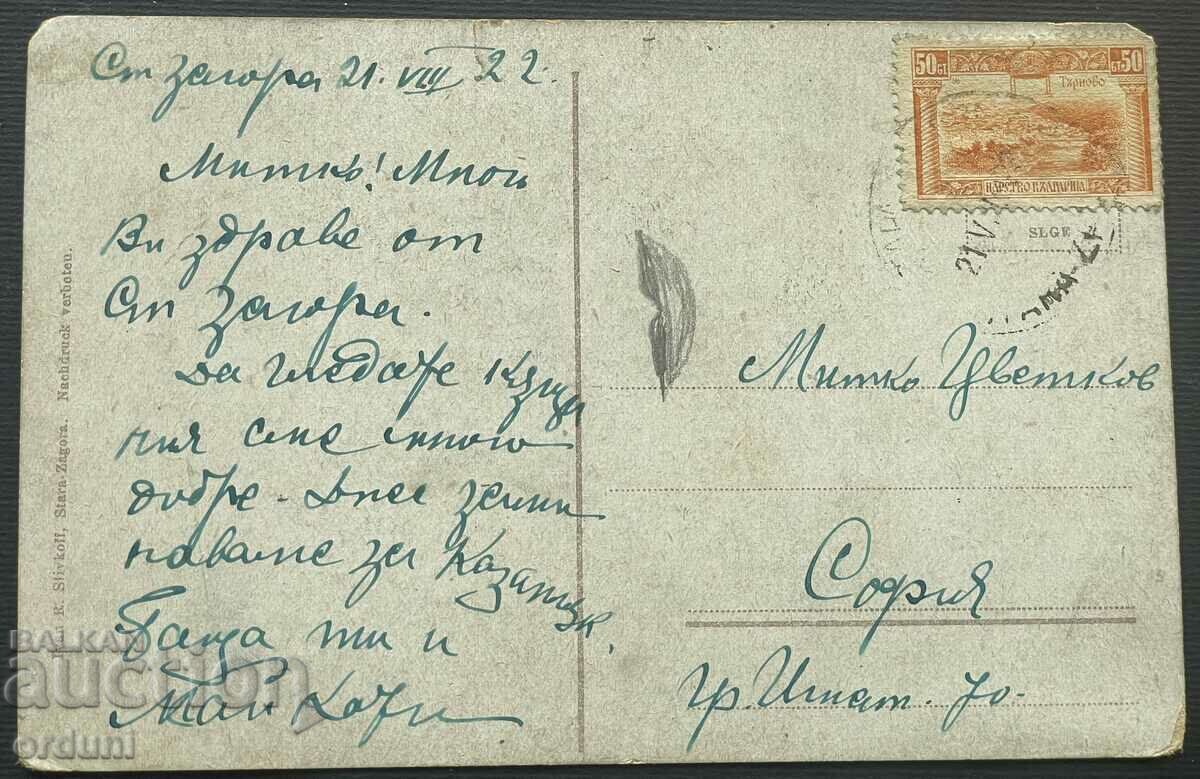 Ст Загора 21. VIII 22.
Митко! Много
Ви здраве от
Ст Загора.
Да гледате къщи
ния сме много
добре. Днес зами
наваме за Казанлък.
Баща ти и
Майка ти
R. Slivkoff, Stara-Zagora. Nachdruck verboten.
50 СТ
50 СТ
Търново
ЦАРСТВО БЪЛГАРИЯ
SLGE
21.V
Митко Цветков
София
гр. Игнат. 70.
BALKAN
auction
orduni